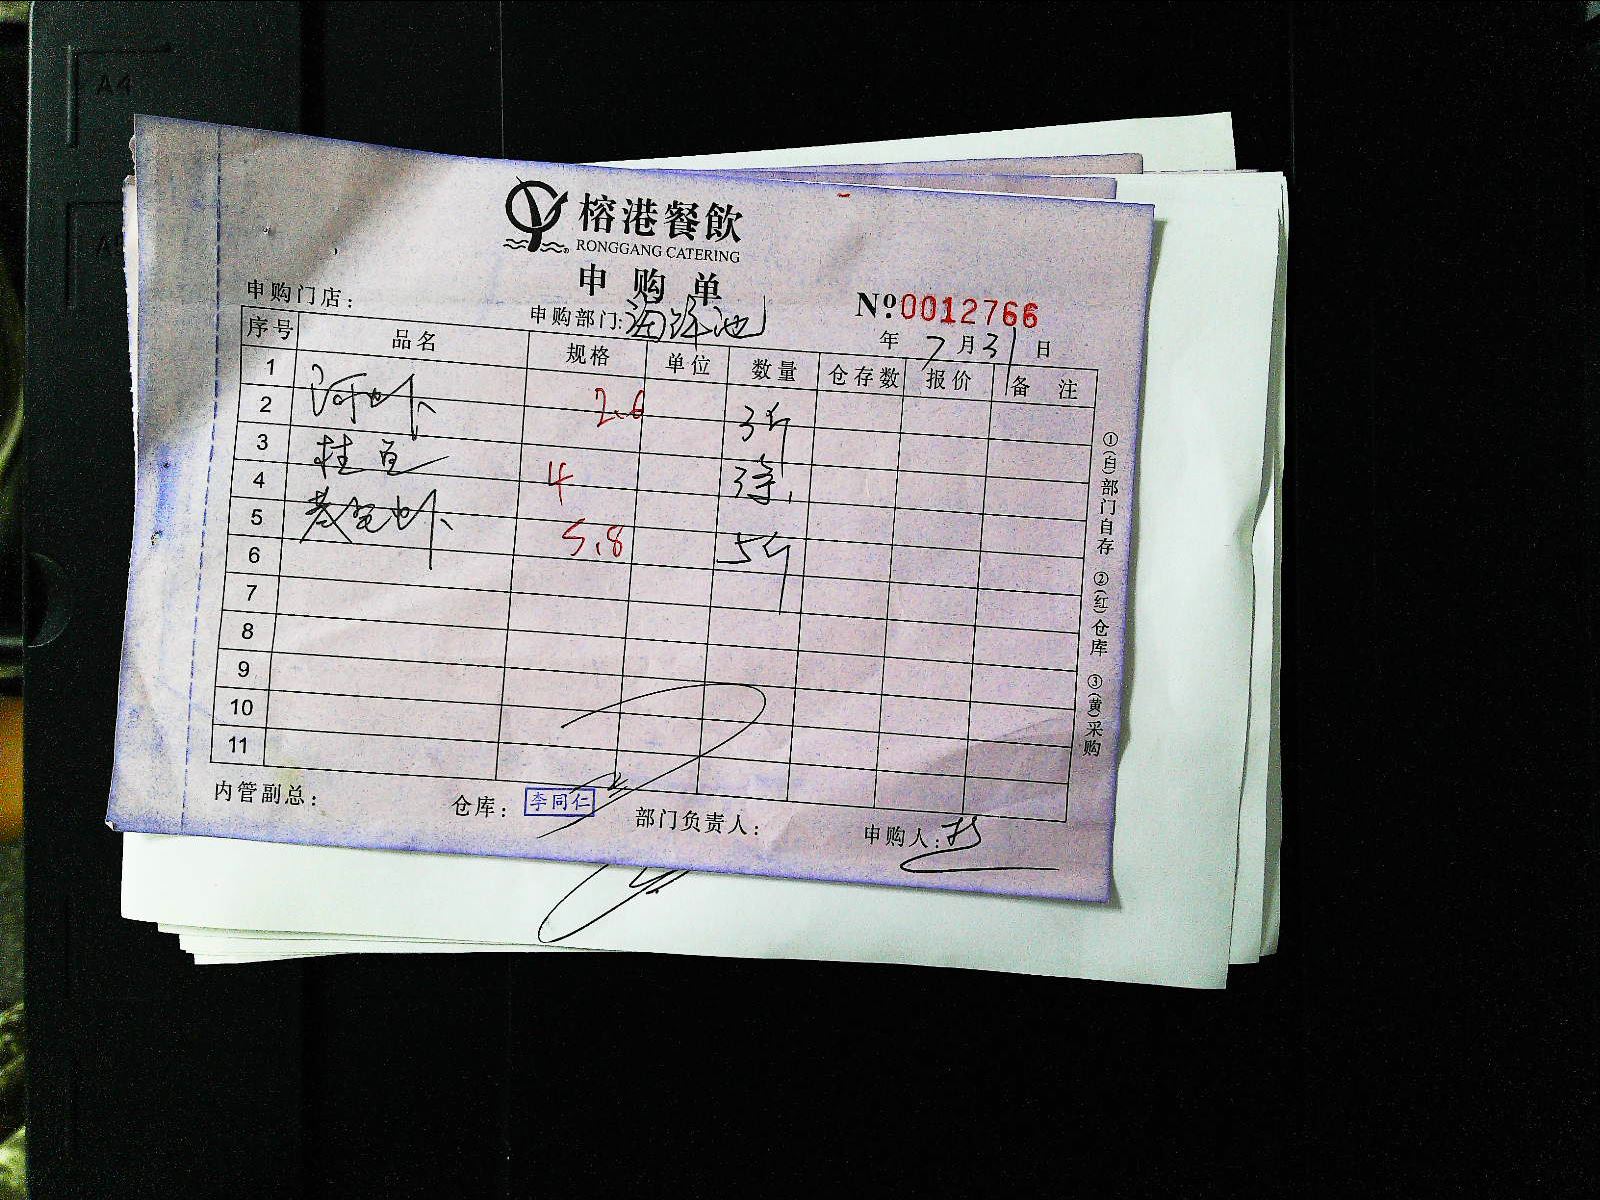 A4
榕港餐飲
RONGGANG CATERING
申购单
申购门店:
申购部门:海鲜池
Nº:0012766
年 7月31日
序号 品名 规格 单位 数量 仓存数 报价 备注
1
2 河虾 2.6 3斤
3 桂鱼 4 3条
4
5 基围虾 5.8 5斤
6
7
8
9
10
11
①(白)部门自存 ②(红)仓库 ③(黄)采购
内管副总: 仓库: 李同仁 部门负责人: 申购人: